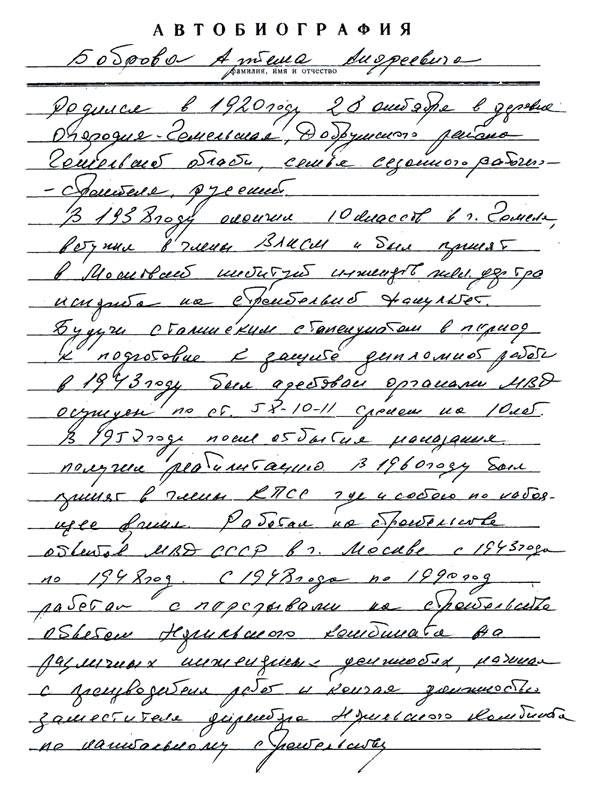 АВТОБИОГРАФИЯ
Боброва Артема Андреевича
фамилия, имя и отчество
Родился в 1920 году 28 октября в деревне
Огородня-Гомельская, Добрушского района
Гомельской области, семья сезонного рабочего-
-строителя, русский.
В 1938 году окончил 10 классов в г. Гомеле,
вступил в члены ВЛКСМ и был принят
в Московский институт инженеров жел. дор. тра
на строительный факультет.
Будучи сталинским стипендиатом в период
к подготовке к защите дипломной работы
в 1943 году был арестован органами МВД
осужден по ст. 58-10-11 сроком на 10 лет.
В 1958 году после отбытия наказания
получил реабилитацию В 1960 году был
принят в члены КПСС где и состою по настоя-
щее время. Работал на строительстве
объектов МВД СССР в г. Москве с 1943 года
по 1948 год. С 1948 года по 1990 год
работал с перерывами на строительстве
объектом Норильского комбината на
различных инженерных должностях, начиная
с производителя работ и кончая должностью
заместителя директора Норильского комбината
по капитальному строительству